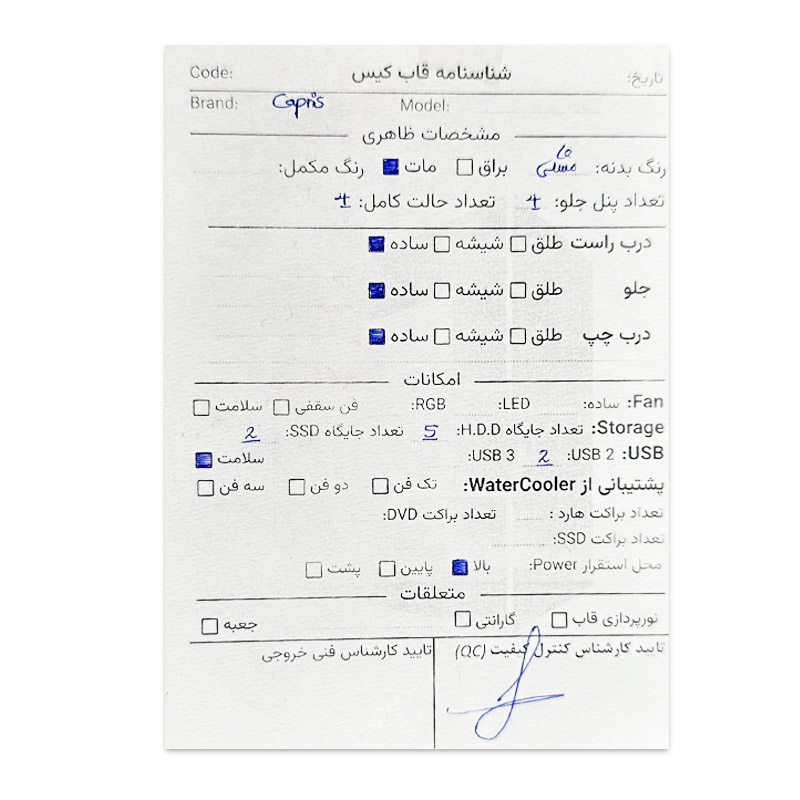 Code: شناسنامه قاب کیس تاریخ:
Brand: Capris Model:
مشخصات ظاهری
رنگ بدنه: مشکی مات براق مات رنگ مکمل:
تعداد پنل جلو: 1 تعداد حالت کامل: 1
درب راست طلق شیشه ساده
جلو طلق شیشه ساده
درب چپ طلق شیشه ساده
امکانات
Fan: ساده: LED: RGB: فن سقفی سلامت
Storage: تعداد جایگاه H.D.D: 5 تعداد جایگاه SSD: 2
USB: USB 2: 2 USB 3: سلامت
پشتیبانی از WaterCooler: تک فن دو فن سه فن
تعداد براکت هارد : تعداد براکت DVD:
تعداد براکت SSD:
محل استقرار Power: بالا پایین پشت
متعلقات
نورپردازی قاب گارانتی جعبه
تایید کارشناس کنترل کیفیت (QC) تایید کارشناس فنی خروجی